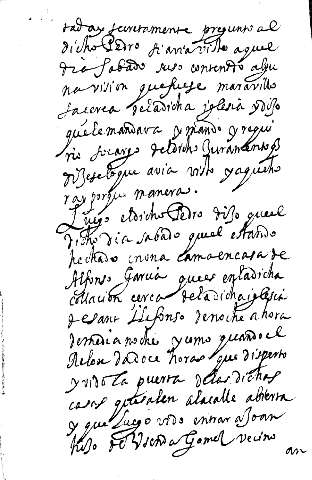 tad ay secretamente pregunto al
dicho Pedro si avia visto aquel
dia Sabado suso contenido algu
na vision que fuese maravillo
sa cerca de la dicha iglesia y dijo
que le mandara y mando y requi
rio so cargo del dicho Juramento q
dijese lo que avia visto y a que ho
ra y por que manera.
Luego el dicho Pedro dijo que el
dicho dia sabado quel estando
hechado en una cama en casa de
Alfonso Garcia que es en la dicha
collacion cerca de la dicha iglesia
de sant Ilefonso de noche a hora
de media noche y como quando el
Relox da doce horas que disperto
y vido la puerta de las dichas
casas que salen a la calle abierta
y que luego vido entrar a Joan
hijo de Usenda Gomez vecino
an